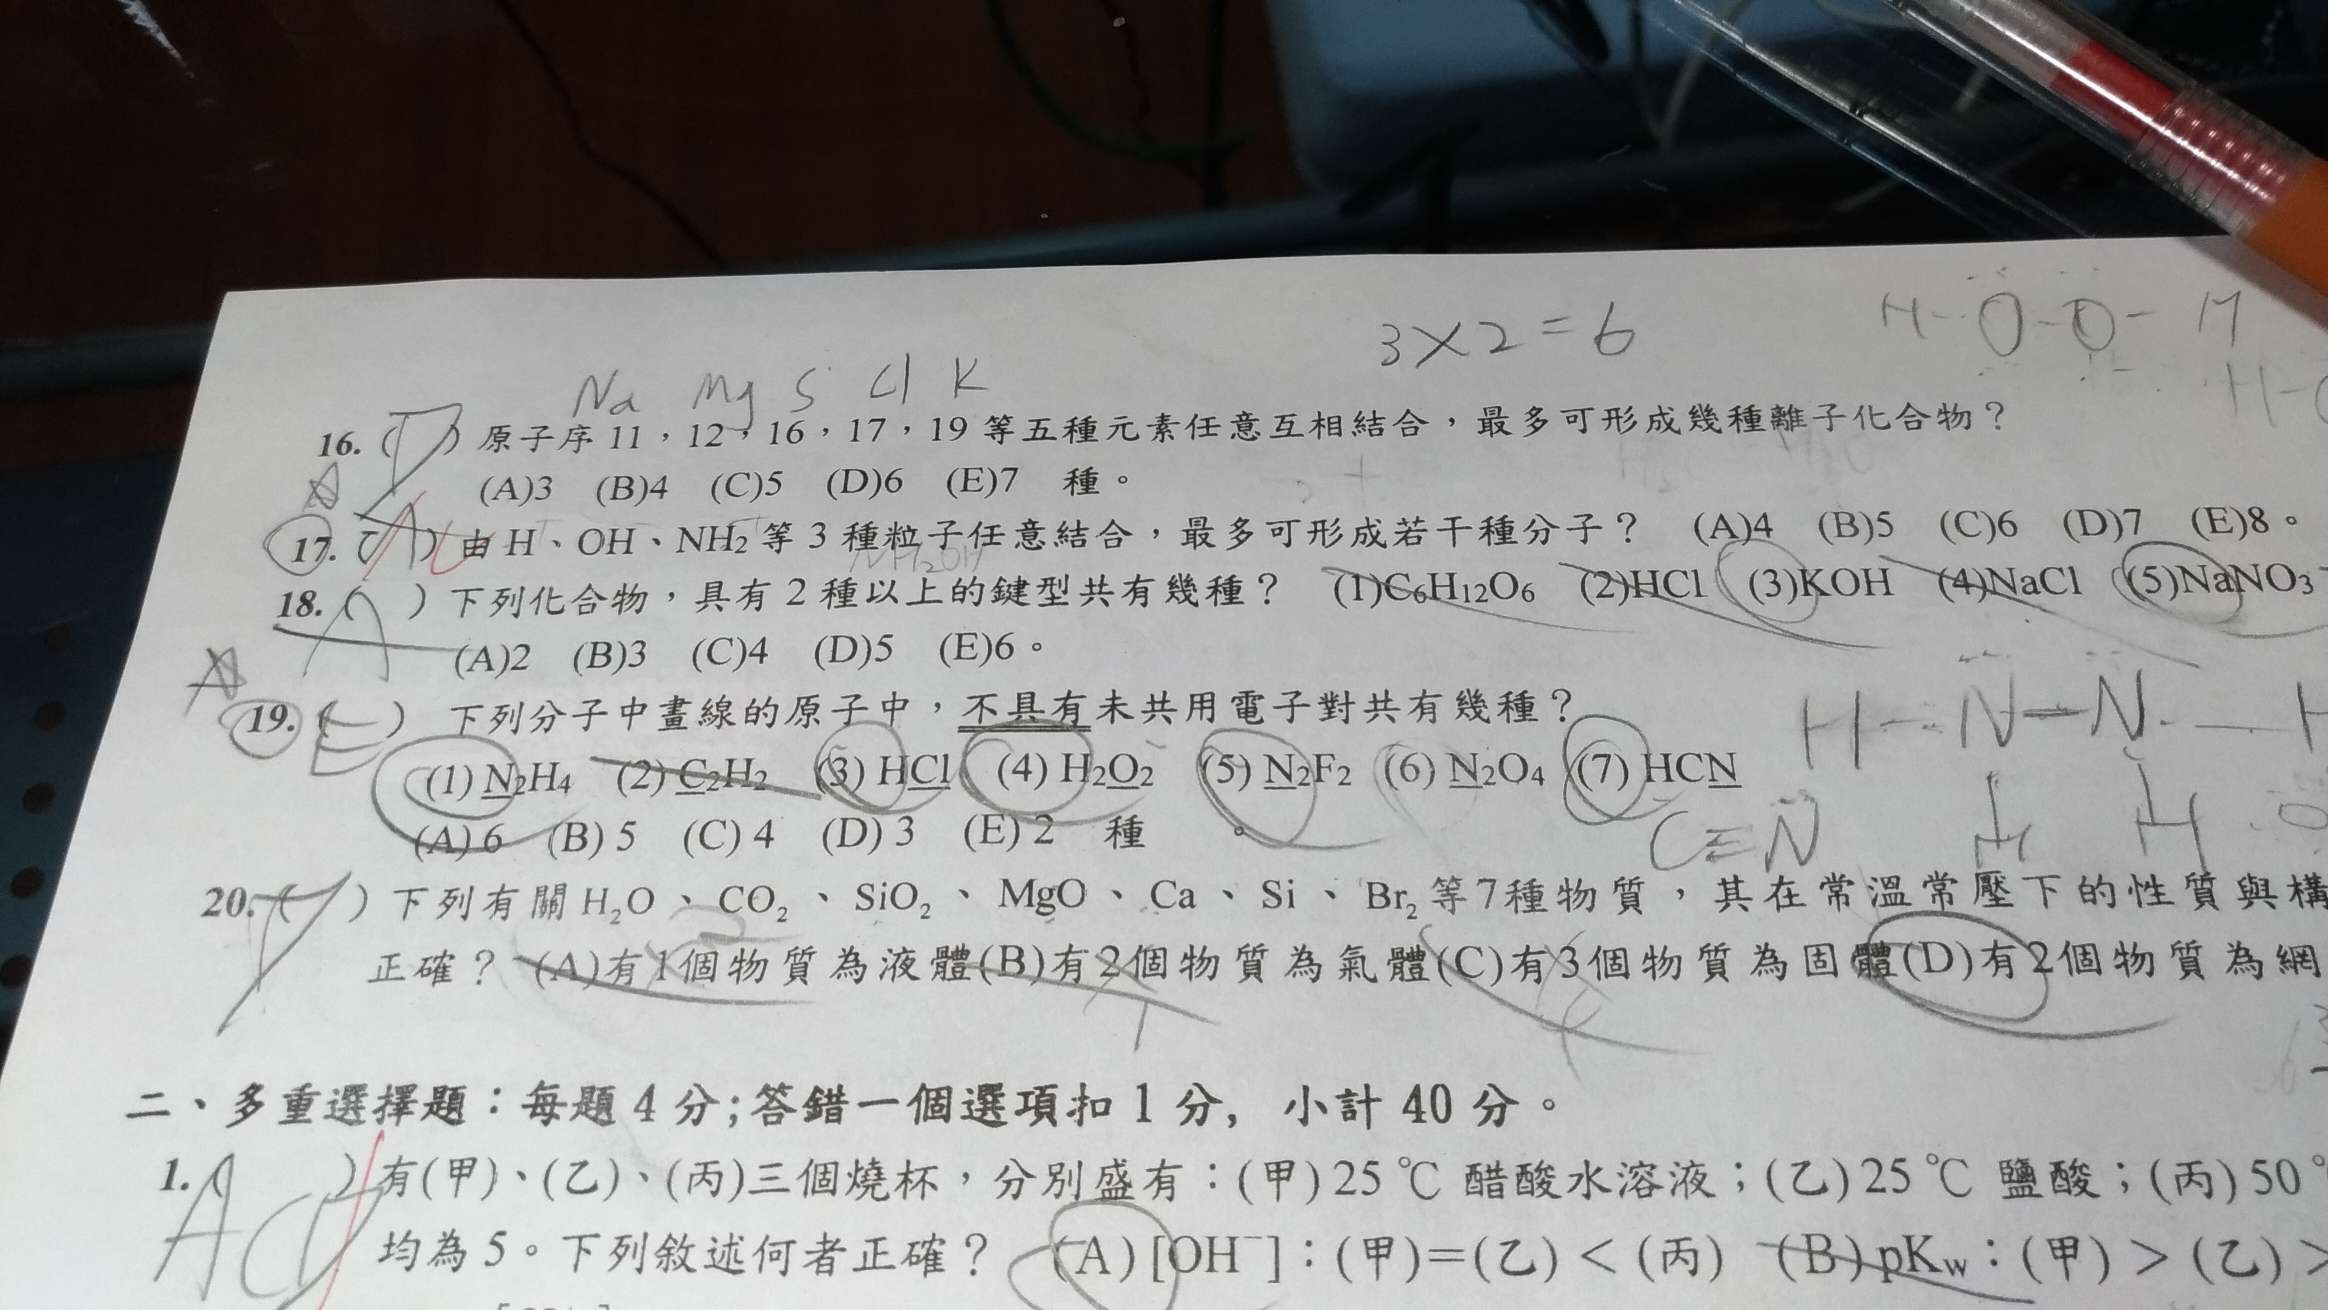 3×2=6
H-O-O-H
Na Mg S Cl K
16. (D) 原子序 11，12，16，17，19 等五種元素任意互相結合，最多可形成幾種離子化合物？
(A)3 (B)4 (C)5 (D)6 (E)7 種。
17. ( ) 由 H、OH、NH2 等 3 種粒子任意結合，最多可形成若干種分子？ (A)4 (B)5 (C)6 (D)7 (E)8。
NH2OH
18. (A) 下列化合物，具有 2 種以上的鍵型共有幾種？ (1)C6H12O6 (2)HCl (3)KOH (4)NaCl (5)NaNO3
(A)2 (B)3 (C)4 (D)5 (E)6。
19. (E) 下列分子中畫線的原子中，不具有未共用電子對共有幾種？
H-N-N-H
(1) N2H4 (2) C2H2 (3) HCl (4) H2O2 (5) N2F2 (6) N2O4 (7) HCN
H H
(A) 6 (B) 5 (C) 4 (D) 3 (E) 2 種。
C≡N
20. (D) 下列有關 H₂O、CO₂、SiO₂、MgO、Ca、Si、Br₂等7種物質，其在常溫常壓下的性質與構
正確？ (A)有1個物質為液體(B)有2個物質為氣體(C)有3個物質為固體(D)有2個物質為網
二、多重選擇題：每題 4 分;答錯一個選項扣 1 分，小計 40 分。
1. ( ) 有(甲)、(乙)、(丙)三個燒杯，分別盛有：(甲) 25 ℃ 醋酸水溶液；(乙) 25 ℃ 鹽酸；(丙) 50 °
均為 5。下列敘述何者正確？ (A) [OH⁻]：(甲)=(乙) < (丙) (B) pKw：(甲) > (乙) >